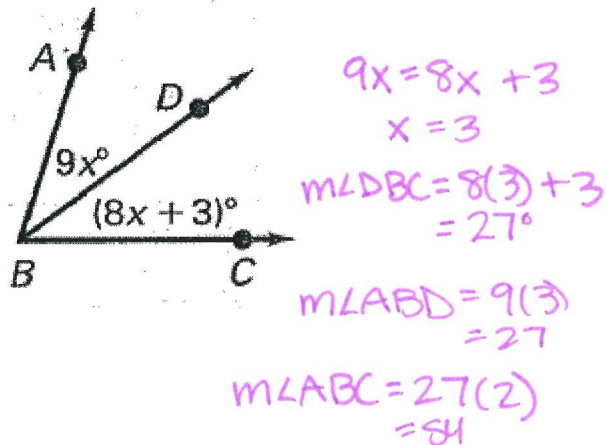 A
D
9x°
(8x + 3)°
B
C
9x = 8x + 3
x = 3
m∠DBC = 8(3) + 3
= 27°
m∠ABD = 9(3)
= 27
m∠ABC = 27(2)
= 54